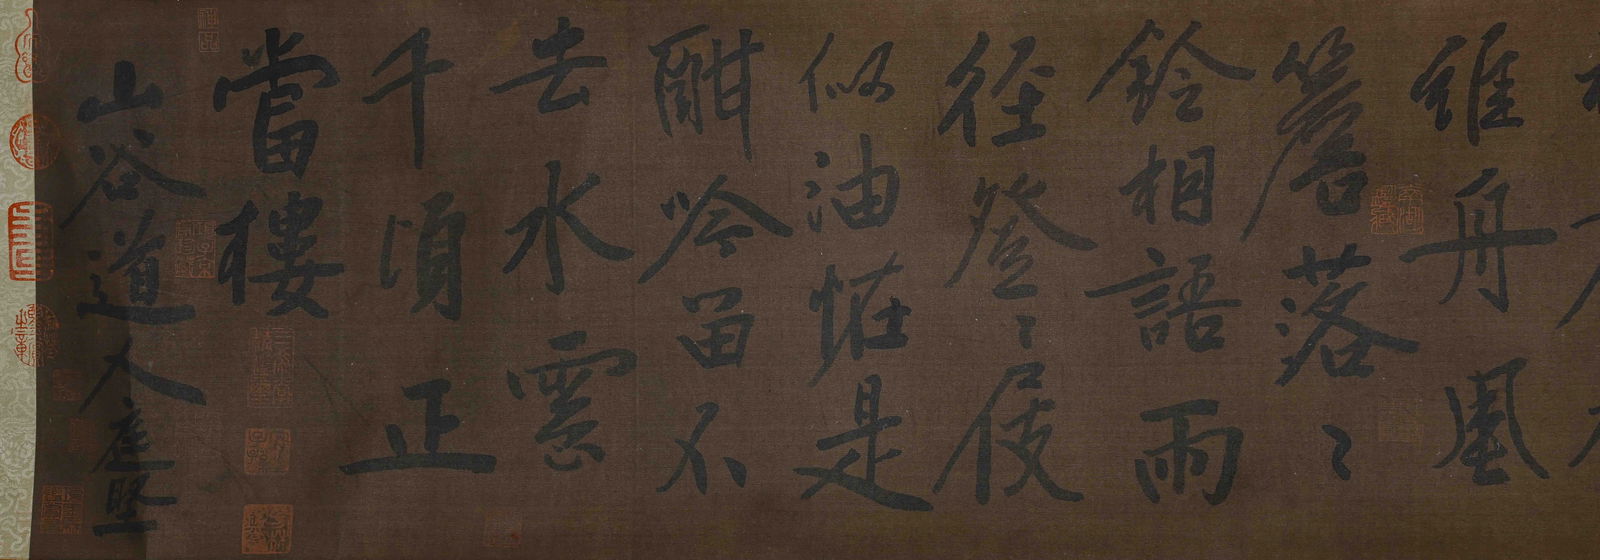 維舟風
簷落〻
鈴相語雨
徑登〻屐
似油恠是
酣吟留不
去水雲
千頃正
當樓
山谷道人庭堅